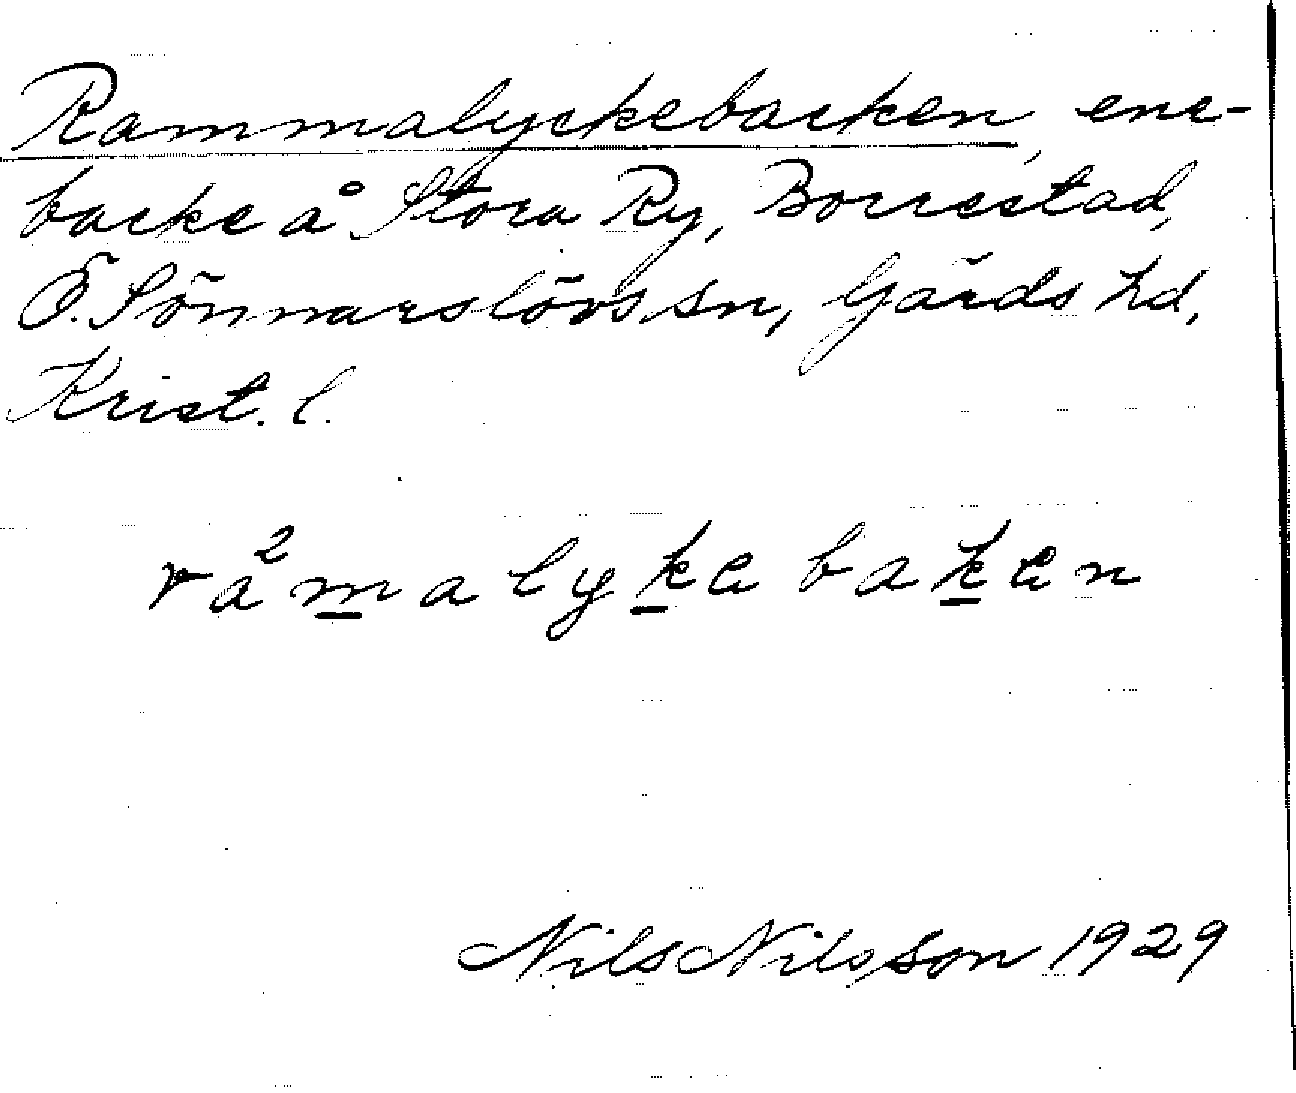 Rammalyckebacken, ene-
backe å Stora Ry, Borrestad,
Ö. Sönnarslövs sn, Gärds hd,
Krist. l.
rå²malykebaken
Nils Nilsson 1929